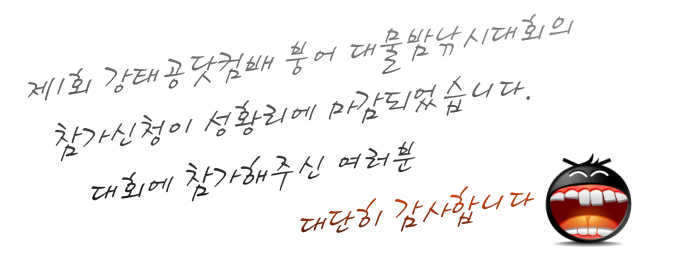 제1회 강태공닷컴배 붕어 대물밤낚시대회의
참가신청이 성황리에 마감되었습니다.
대회에 참가해주신 여러분
대단히 감사합니다